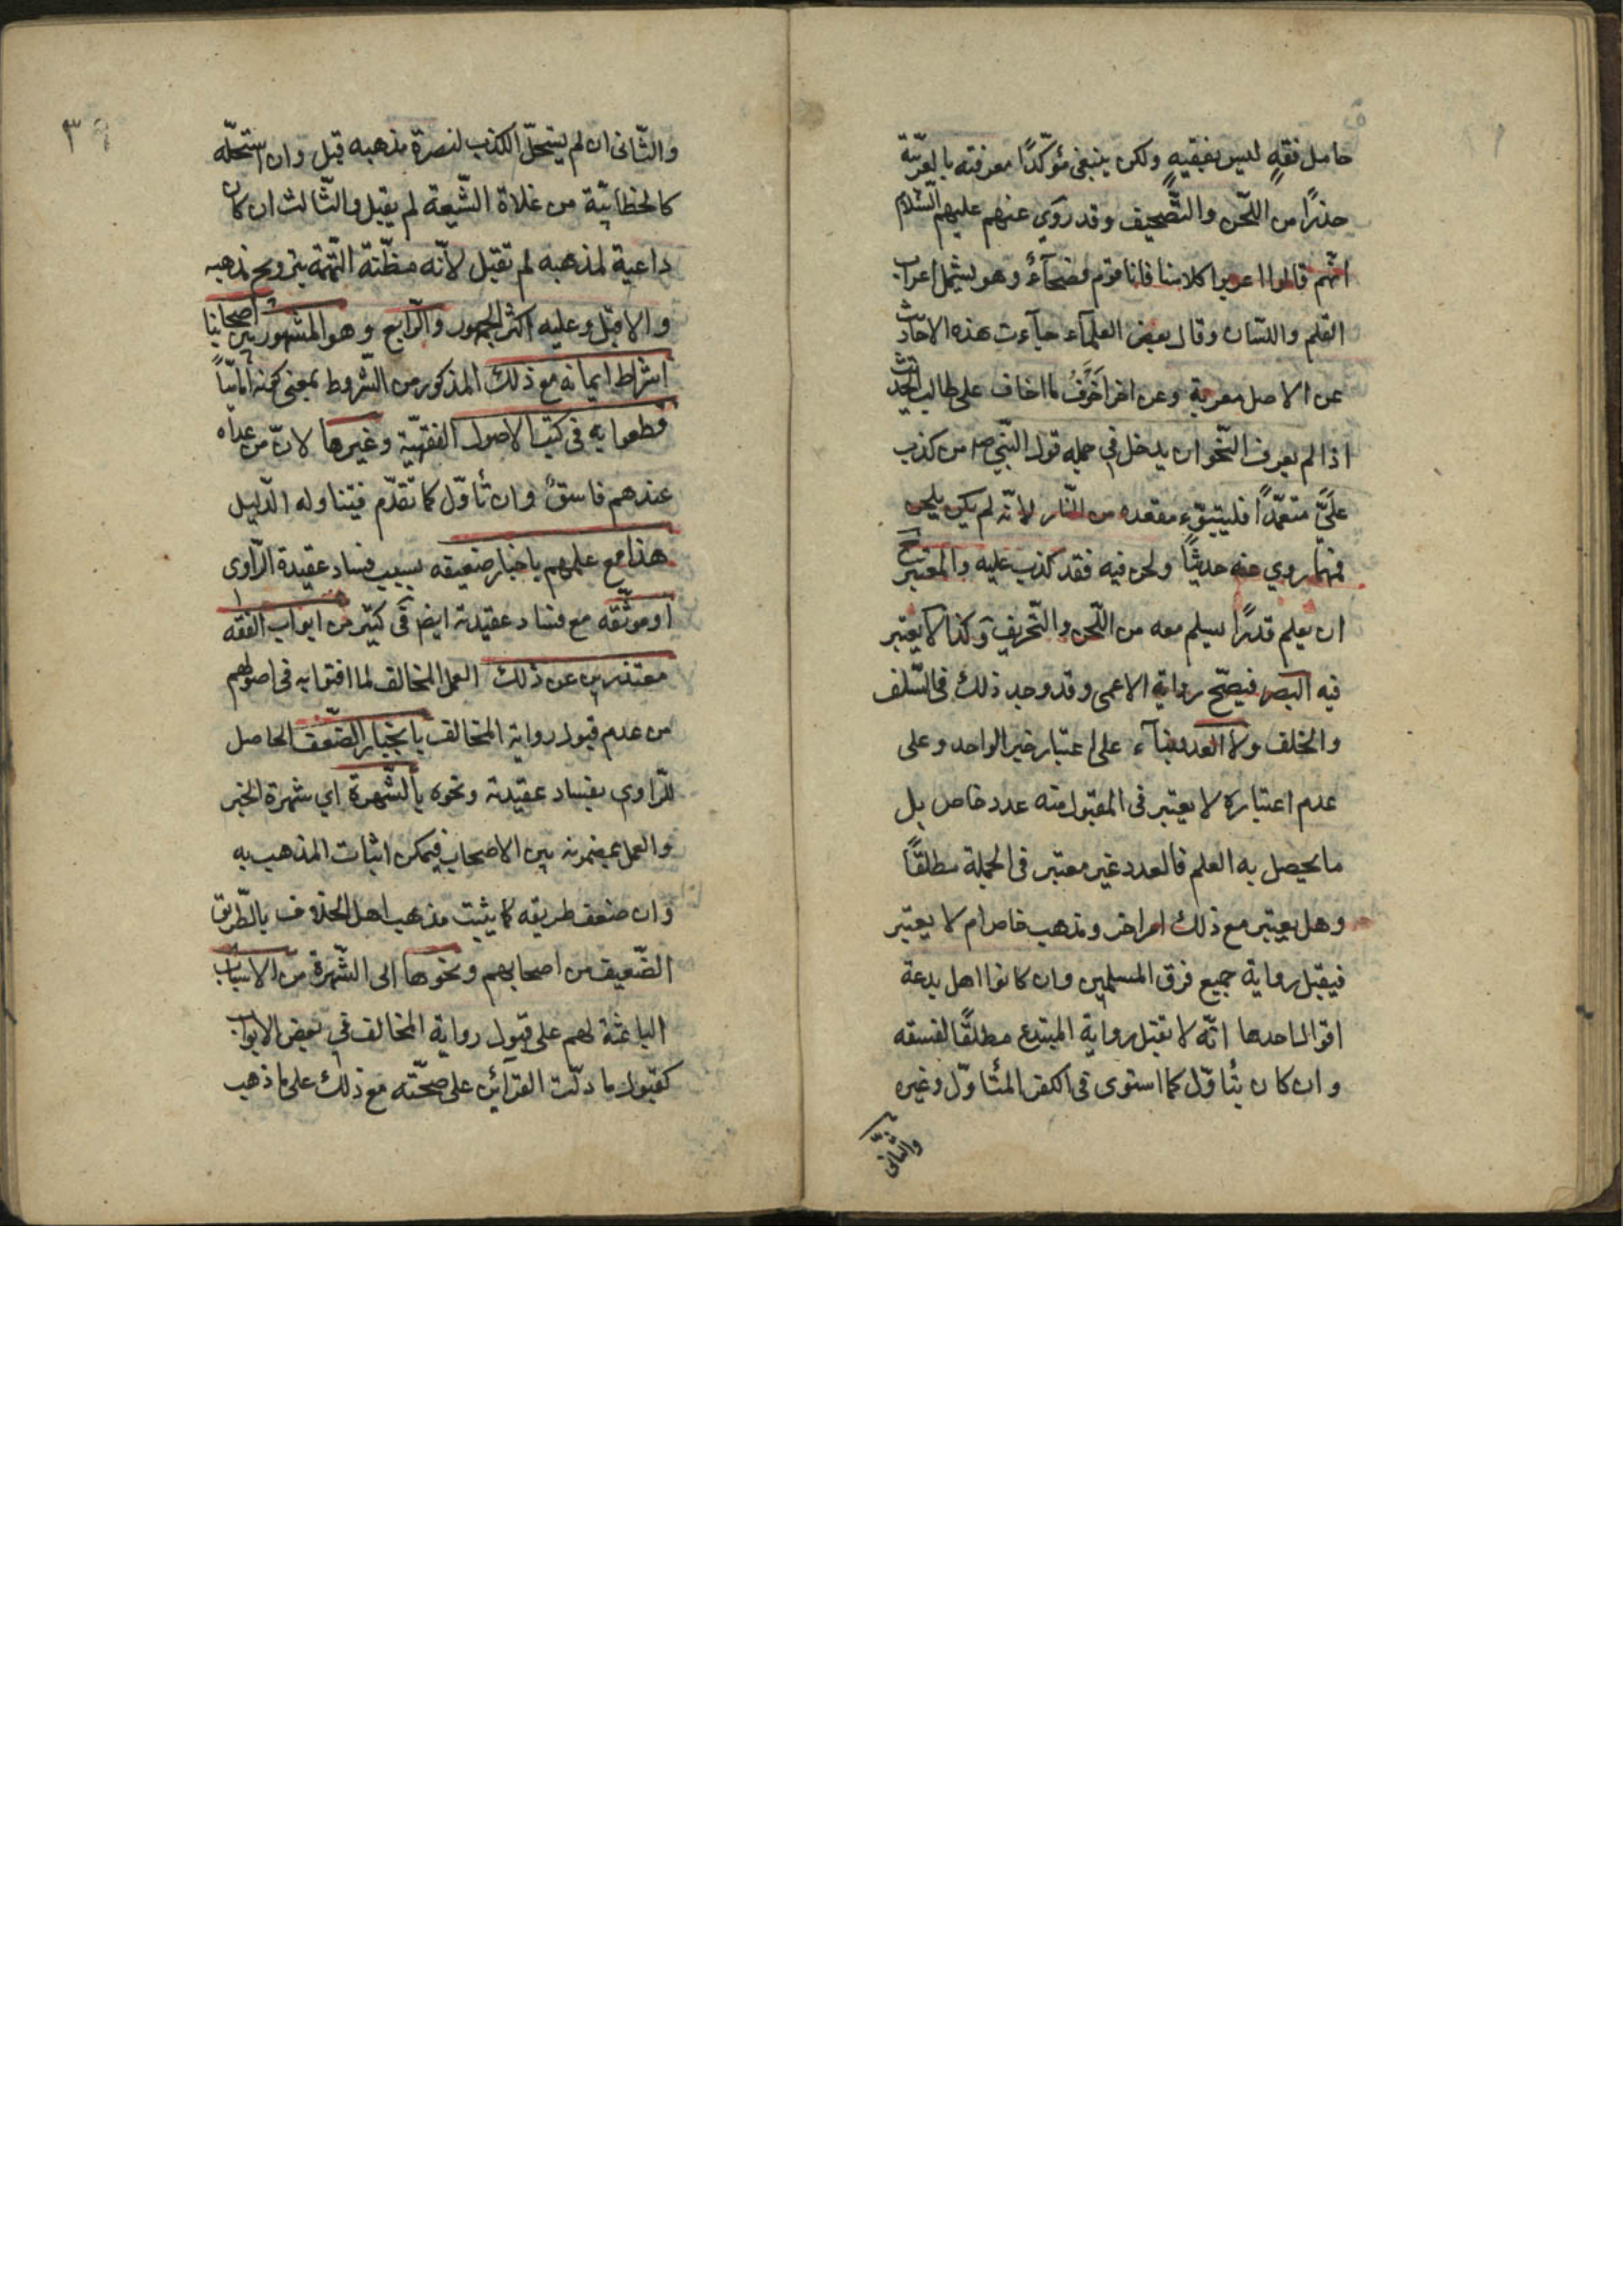 حامل فقهٍ ليس بفقيهٍ ولكن ينبغي مؤكّدًا معرفته بالعربيّة
حذرًا من اللّحن والتّصحيف وقد روي عنهم عليهم السّلام
انّهم قالوا اعربوا كلامنا فانا قوم فصحآءُ وهو يشمل اعراب
القلم واللّسان وقال بعض العلمآء جآءت هذه الاحاديث
عن الاصل معربة وعن اخر اخوف ما اخاف على طالب الحديث
اذا لم يعرف النّحو ان يدخل في جملة قول النّبي ص من كذب
عليَّ متعمّدًا فليتبوّء مقعده من النّار لانّه لم يكن يلحن
فمهما روي عنه حديثًا ولحن فيه فقد كذب عليه والمعتبر ح
ان يعلم قدرًا يسلم معه من اللّحن والتّحريف وكذا لا يعتبر
فيه البصر فيصحّ رواية الاعمى وقد وجد ذلك في السّلف
والخلف ولا العدد بنآء على اعتبار خبر الواحد وعلى
عدم اعتباره لا يعتبر في المقبول منه عدد خاص بل
ما يحصل به العلم فالعدد غير معتبر في الجملة مطلقًا
وهل يعتبر مع ذلك امر اخر ومذهب خاص ام لا يعتبر
فيقبل رواية جميع فرق المسلمين وان كانوا اهل بدعة
اقوال احدها انّه لا تقبل رواية المبتدع مطلقًا لفسقه
وان كان يتأوّل كما استوى في الكفر المتأوّل وغيره
والثّاني
٣٩
والثّاني ان لم يستحلّ الكذب لنصرة مذهبه قبل وان استحلّه
كالخطابيّة من غلاة الشّيعة لم يقبل والثّالث ان كان
داعية لمذهبه لم تقبل لانّه مظنّة التّهمة بترويج مذهبه
والا قبل وعليه اكثر الجمهور والرّابع وهو المشهور بين اصحابنا
اشتراط ايمانه مع ذلك المذكور من الشّروط بمعنى كونه اماميّاً
قطعوا به في كتب الاصول الفقهيّة وغيرها لانّ من عداه
عندهم فاسقٌ وان تأوّل كما تقدّم فيتناوله الدّليل
هذا مع عملهم باخبار ضعيفه بسبب فساد عقيدة الرّاوي
او موثّقه مع فساد عقيدته ايضا في كثير من ابواب الفقه
معتذرين عن ذلك العمل المخالف لما افتوا به في اصولهم
من عدم قبول رواية المخالف بانجبار الضّعف الحاصل
للرّاوي بفساد عقيدته ونحوه بالشّهرة اي شهرة الخبر
والعمل بمضمونه بين الاصحاب فيمكن اثبات المذهب به
وان ضعف طريقه كما يثبت مذهب اهل الخلاف بالطّريق
الضّعيف من اصحابهم ونحوها الى الشّهرة من الاسباب
الباعثة لهم على قبول رواية المخالف في بعض الابواب
كقبول ما دلّت القرآئن على صحّته مع ذلك على ما ذهب